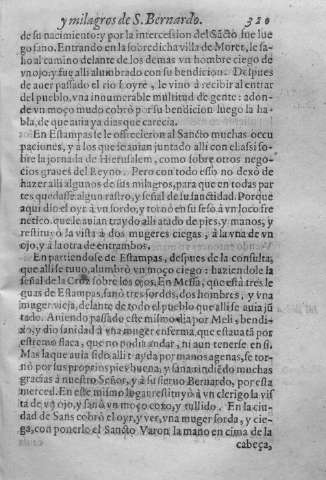 y milagros de S. Bernardo. 320
de su nacimiento: y por la intercession del Sãcto fue lue
go sano. Entrando en la sobredicha villa de Moret, le sa-
lio al camino delante de los demas vn hombre ciego de
vn ojo: y fue alli alumbrado con su bendicion. Despues
de auer passado el rio Loyre, le vino à recibir al entrar
del pueblo, vna innumerable multitud de gente: adon-
de vn moço mudo cobrò por su bendicion luego la ha-
bla, de que auia ya dias que carecia.
En Estampas le le offrecieron al Sancto muchas occu
paciones, y a los que le auian juntado alli con el: assi so-
bre la jornada de Hierusalem, como sobre otros nego-
cios graues del Reyno. Pero con todo esso no dexò de
hazer alli algunos de sus milagros, para que en todas par
tes quedasse algun rastro, y señal de su sanctidad. Porque
aqui dio el oyr à vn sordo, y tornò en su seso à vn loco fre
netico, que le auian traydo alli atado de pies, y manos, y
restituyò la vista à dos mugeres ciegas, à la vna de vn
ojo, y à la otra de entrambos.
En partiendose de Estampas, despues de la consulta,
que alli se tuuo, alumbrò vn moço ciego: haziendole la
señal de la Cruz sobre los ojos. En Messa, que està tres le
guas de Estampas, sanò tres sordos, dos hombres, y vna
muger vieja, delante de todo el pueblo que alli se auia jũ
tado. Auiendo passado este mismo dia por Meli, bendi-
xo, y dio sanidad à vna muger enferma, que estaua tã por
estremo flaca, que no podia andar, ni aun tenerse en si.
Mas la que auia sido alli trayda por manos agenas, se tor-
nò por sus propios pies buena, y sana: rindiẽdo muchas
gracias à nuestro Señor, y à su sieruo Bernardo, por esta
merced. En este mismo lugar restituyò à vn clerigo la vis
ta de vn ojo, y sanò vn moço coxo, y tullido. En la ciu-
dad de Sans cobrò el oyr, y ver, vna muger sorda, y cie-
ga, con ponerle el Sancto Varon la mano en cima de la
cabeça,